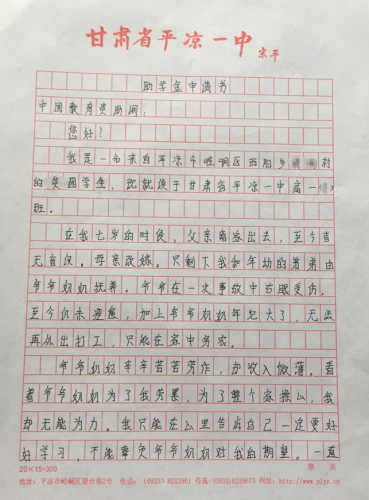 甘肃省平凉一中
助学金申请书
中国教育资助网：
您好！
我是一名来自平凉市崆峒区西阳乡 村
的贫困学生，现就读于甘肃省平凉一中高一
班。
在我七岁的时候，父亲离家出去，至今杳
无音信。母亲改嫁。只剩下我和年幼的弟弟由
爷爷奶奶抚养，爷爷在一次事故中右眼受伤，
至今仍未痊愈，加上爷爷奶奶年纪大了，无法
再外出打工，只能在家中务农。
爷爷奶奶辛辛苦苦劳作，却收入微薄。看
着爷爷奶奶为了我劳累，为了整个家操心，我
却无能为力。我只能在心里告诉自己一定要好
好学习，不能辜负爷爷奶奶对我的期望。一直
20×15=300 第 页
地址：平凉市崆峒区望台巷2号 电话：(0933) 8212961 传真：(0933)8210673 网址：http://www.plyz.cn